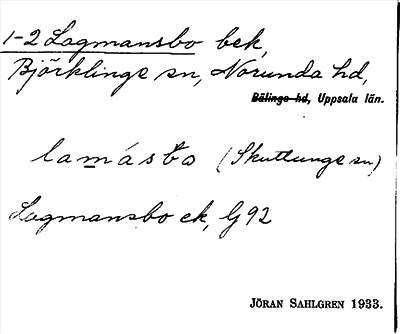 1-2 Lagmansbo bek,
Björklinge sn, Norunda hd,
Bälinge hd, Uppsala län.
lamásbo (Skuttunge sn)
Lagmansbo ek, G 92
JÖRAN SAHLGREN 1933.